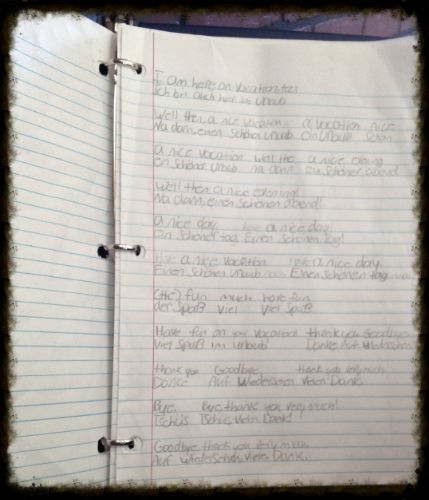 I am here on vacation too!
Ich bin auch hier im Urlaub
Well then, a nice vacation a vacation nice
Na dann, einen schönen Urlaub Ein Urlaub schön
a nice vacation well the a nice evening
ein schöner Urlaub na dann ein schöner abend
Well then a nice evening!
Na dann, einen schönen abend!
a nice day. have a nice day!
ein schöner tag. Einen schönen tag!
Have a nice vacation have a nice day.
Einen schönen Urlaub noch Einen schönen tag noch
(the) fun much have fun
der Spaß viel viel Spaß
Have fun on your vacation! thank you Goodbye
viel Spaß im Urlaub! Danke Auf Wiedersehen
thank you Goodbye thank you very much
Danke Auf Wiedersehen Vielen Dank.
Bye. Bye, thank you very much!
Tschüs Tschüs, vielen Dank!
Goodbye, thank you very much
Auf Wiedersehen, vielen Dank.